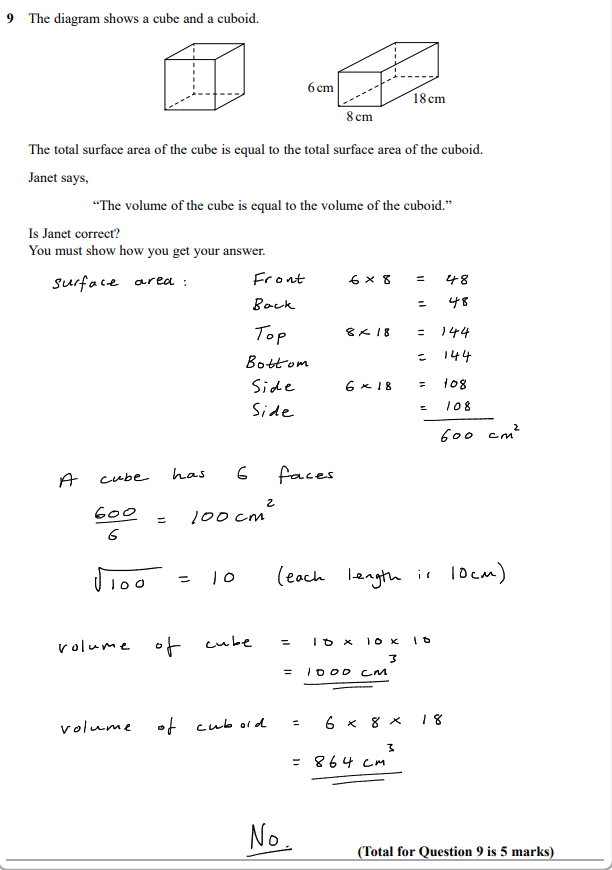 9 The diagram shows a cube and a cuboid.
6 cm
18 cm
8 cm
The total surface area of the cube is equal to the total surface area of the cuboid.
Janet says,
“The volume of the cube is equal to the volume of the cuboid.”
Is Janet correct?
You must show how you get your answer.
surface area : Front 6 × 8 = 48
Back = 48
Top 8 × 18 = 144
Bottom = 144
Side 6 × 18 = 108
Side = 108
600 cm²
A cube has 6 faces
600/6 = 100 cm²
√100 = 10 (each length is 10cm)
volume of cube = 10 × 10 × 10
= 1000 cm³
volume of cuboid = 6 × 8 × 18
= 864 cm³
No.
(Total for Question 9 is 5 marks)